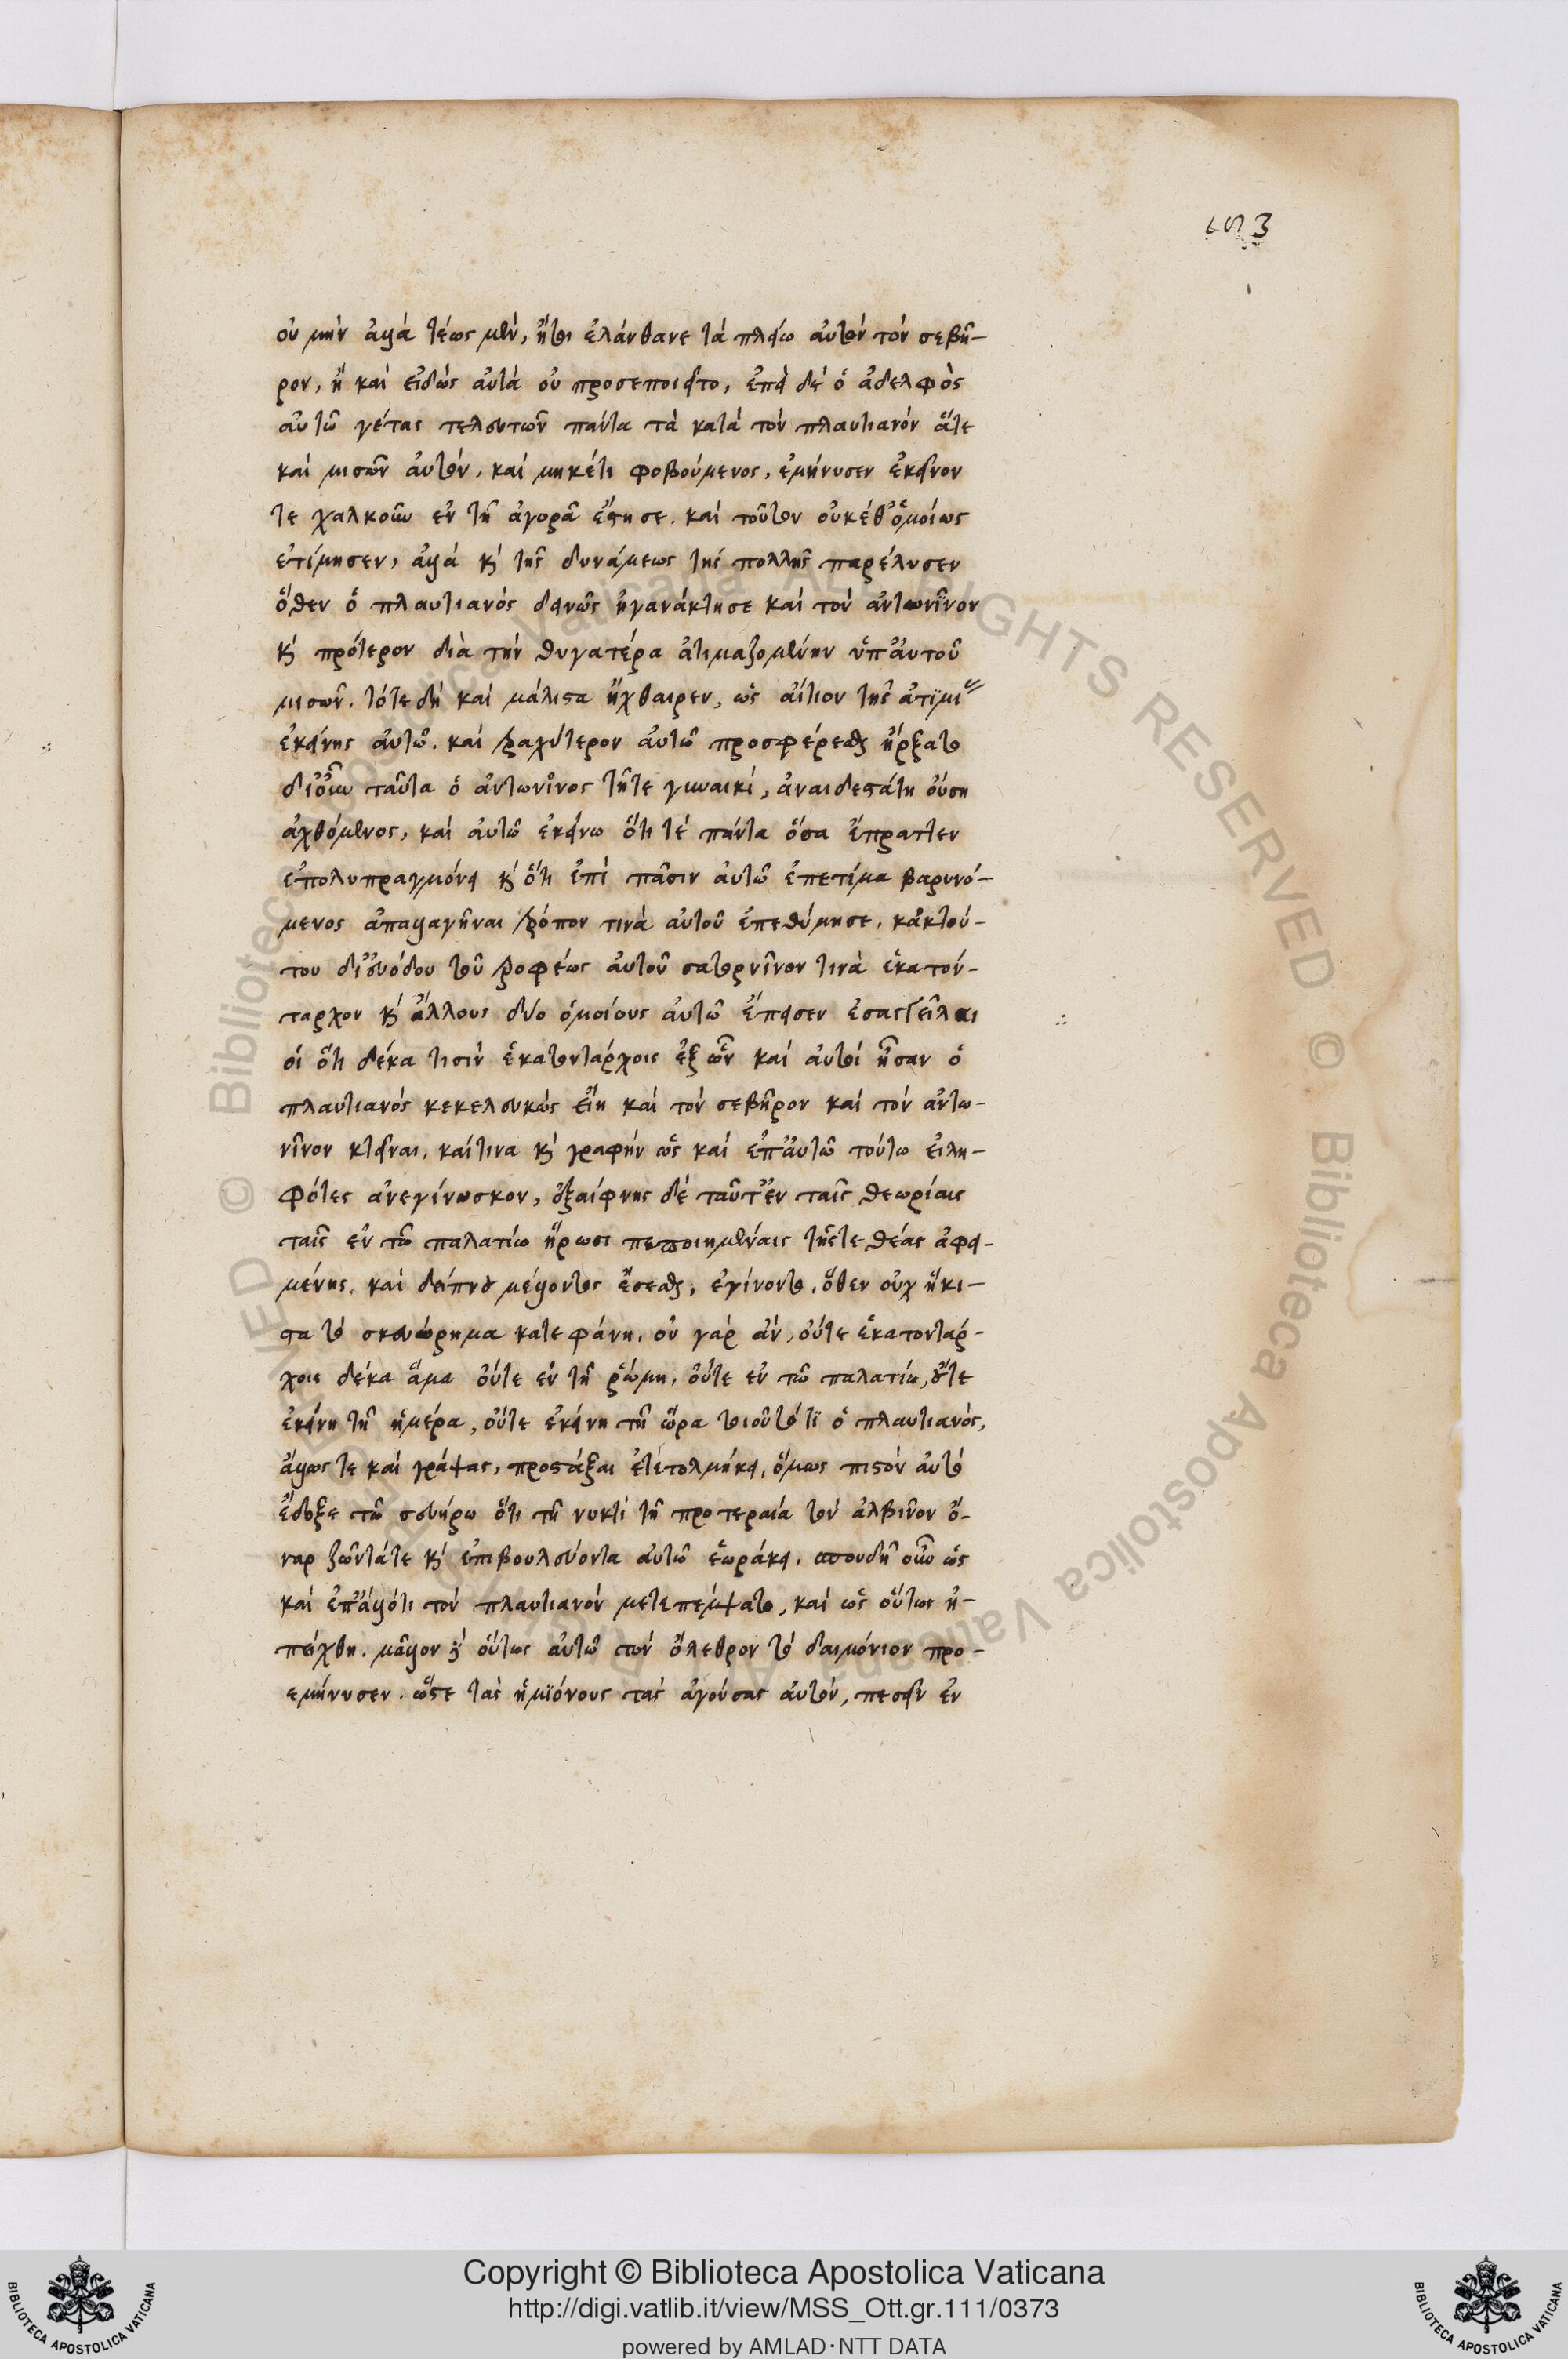 193
οὐ μὴν ἀλλὰ τέως μὲν, ἤτοι ἐλάνθανε τὰ πλείω αὐτὸν τὸν σεβῆ-
ρον, ἢ καὶ εἰδὼς αὐτὰ οὐ προσεποιεῖτο, ἐπεὶ δὲ ὁ ἀδελφὸς
αὐτῶ γέτας τελευτῶν πάντα τὰ κατὰ τὸν πλαυτιανὸν ἅτε
καὶ μισῶν αὐτὸν, καὶ μηκέτι φοβούμενος, ἐμήνυσεν ἐκεῖνον
τε χαλκοῦν ἐν τῆ ἀγορᾶ ἔστησε. καὶ τοῦτον οὐκέθ' ὁμοίως
ἐτίμησεν, ἀλλὰ κὶ τῆς δυνάμεως τῆς πολλῆς παρέλυσεν
ὅθεν ὁ πλαυτιανὸς δεινῶς ἠγανάκτησε καὶ τὸν ἀντωνῖνον
κὶ πρότερον διὰ τὴν θυγατέρα ἀτιμαζομένην ὑπ' αὐτοῦ
μισῶν. τότε δὴ καὶ μάλιστα ἤχθαιρεν, ὡς αἴτιον τῆς ἀτϊμί
ἐκείνης αὐτῶ. καὶ τραχύτερον αὐτῶ προσφέρεσθαι ἤρξατο
δι' οὖν ταῦτα ὁ ἀντωνῖνος τῆτε γυναικὶ, ἀναιδεστάτη οὔση
ἀχθόμενος, καὶ αὐτῶ ἐκείνω ὅτι τὲ πάντα ὅσα ἔπραττεν
ἐπολυπραγμόνει κὶ ὅτι ἐπὶ πᾶσιν αὐτῶ ἐπετίμα βαρυνό-
μενος ἀπαλλαγῆναι τρόπον τινὰ αὐτοῦ ἐπεθύμησε. κἀκτού-
του δι' εὐόδου τοῦ τροφέως αὐτοῦ σατορνῖνον τινὰ ἑκατόν-
ταρχον κὶ ἄλλους δύο ὁμοίους αὐτῶ ἔπεισεν ἐσαγγεῖλαι
οἱ ὅτι δέκα τισὶν ἑκατοντάρχοις ἐξ ὧν καὶ αὐτοὶ ἦσαν ὁ
πλαυτιανὸς κεκελευκὼς εἴη καὶ τὸν σεβῆρον καὶ τὸν ἀντω-
νῖνον κτεῖναι. καί τινα κὶ γραφὴν ὡς καὶ ἐπ' αὐτῶ τούτω εἰλη-
φότες ἀνεγίνωσκον, ἐξαίφνης δὲ ταῦτ' ἐν ταῖς θεωρίαις
ταῖς ἐν τῶ παλατίω ἥρωσι πεποιημέναις τῆςτε θέας ἀφει-
μένης. καὶ δείπνου μέλλοντος ἔσεσθαι, ἐγίνοντο. ὅθεν οὐχ ἥκι-
στα τὸ σκευώρημα κατεφάνη. οὐ γὰρ ἂν, οὔτε ἑκατοντάρ-
χοις δέκα ἅμα οὔτε ἐν τῆ ῥώμη, οὔτε ἐν τῶ παλατίω, οὔτε
ἐκείνη τῆ ἡμέρα, οὔτε ἐκείνη τῆ ὥρα τοιοῦτό τϊ ὁ πλαυτιανὸς,
ἄλλως τε καὶ γράψας, προστάξαι ἐτετολμήκει, ὅμως πιστὸν αὐτὸ
ἔδοξε τῶ σευήρω ὅτι τῆ νυκτὶ τῆ προτεραία τὸν ἀλβῖνον ὄ-
ναρ ζῶντάτε κὶ ἐπιβουλεύοντα αὐτῶ ἑωράκει. σπουδῆ οὖν ὡς
καὶ ἐπ' ἄλλό τι τὸν πλαυτιανὸν μετεπέμψατο, καὶ ὡς οὕτως ἠ-
πείχθη. μᾶλλον δὲ οὕτως αὐτῶ τὸν ὄλεθρον τὸ δαιμόνιον προ-
εμήνυσεν. ὥστε τὰς ἡμϊόνους τὰς ἀγούσας αὐτὸν, πεσεῖν ἐν
Copyright © Biblioteca Apostolica Vaticana
http://digi.vatlib.it/view/MSS_Ott.gr.111/0373
powered by AMLAD·NTT DATA